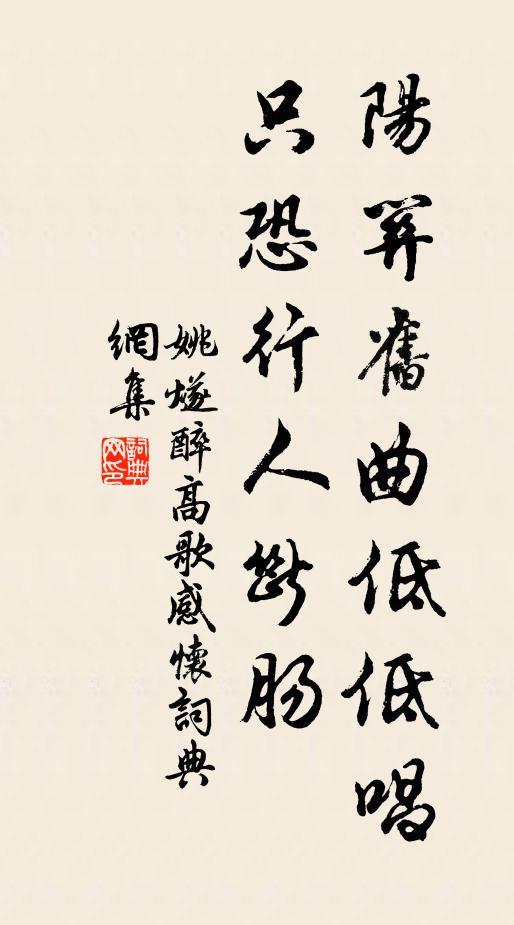 陽關舊曲低低唱
只恐行人斷腸
姚燧醉高歌感懷詞典
網集
詞典網印